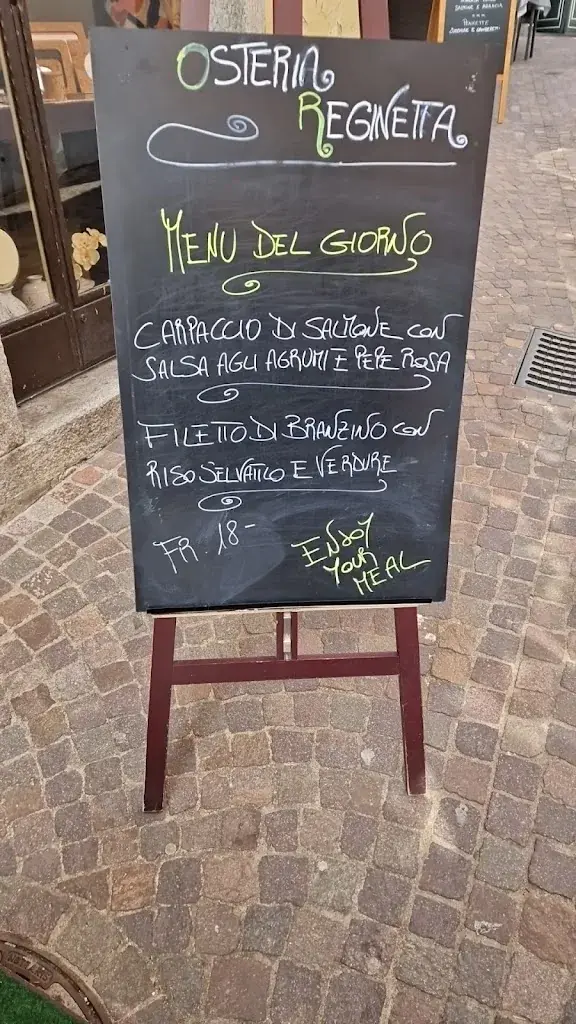 OSTERIA
REGINETTA
MENU DEL GIORNO
CARPACCIO DI SALMONE CON
SALSA AGLI AGRUMI E PEPE ROSA
FILETTO DI BRANZINO CON
RISO SELVATICO E VERDURE
FR. 18-
ENJOY
YOUR
MEAL
SALMONE E
PENNETTE